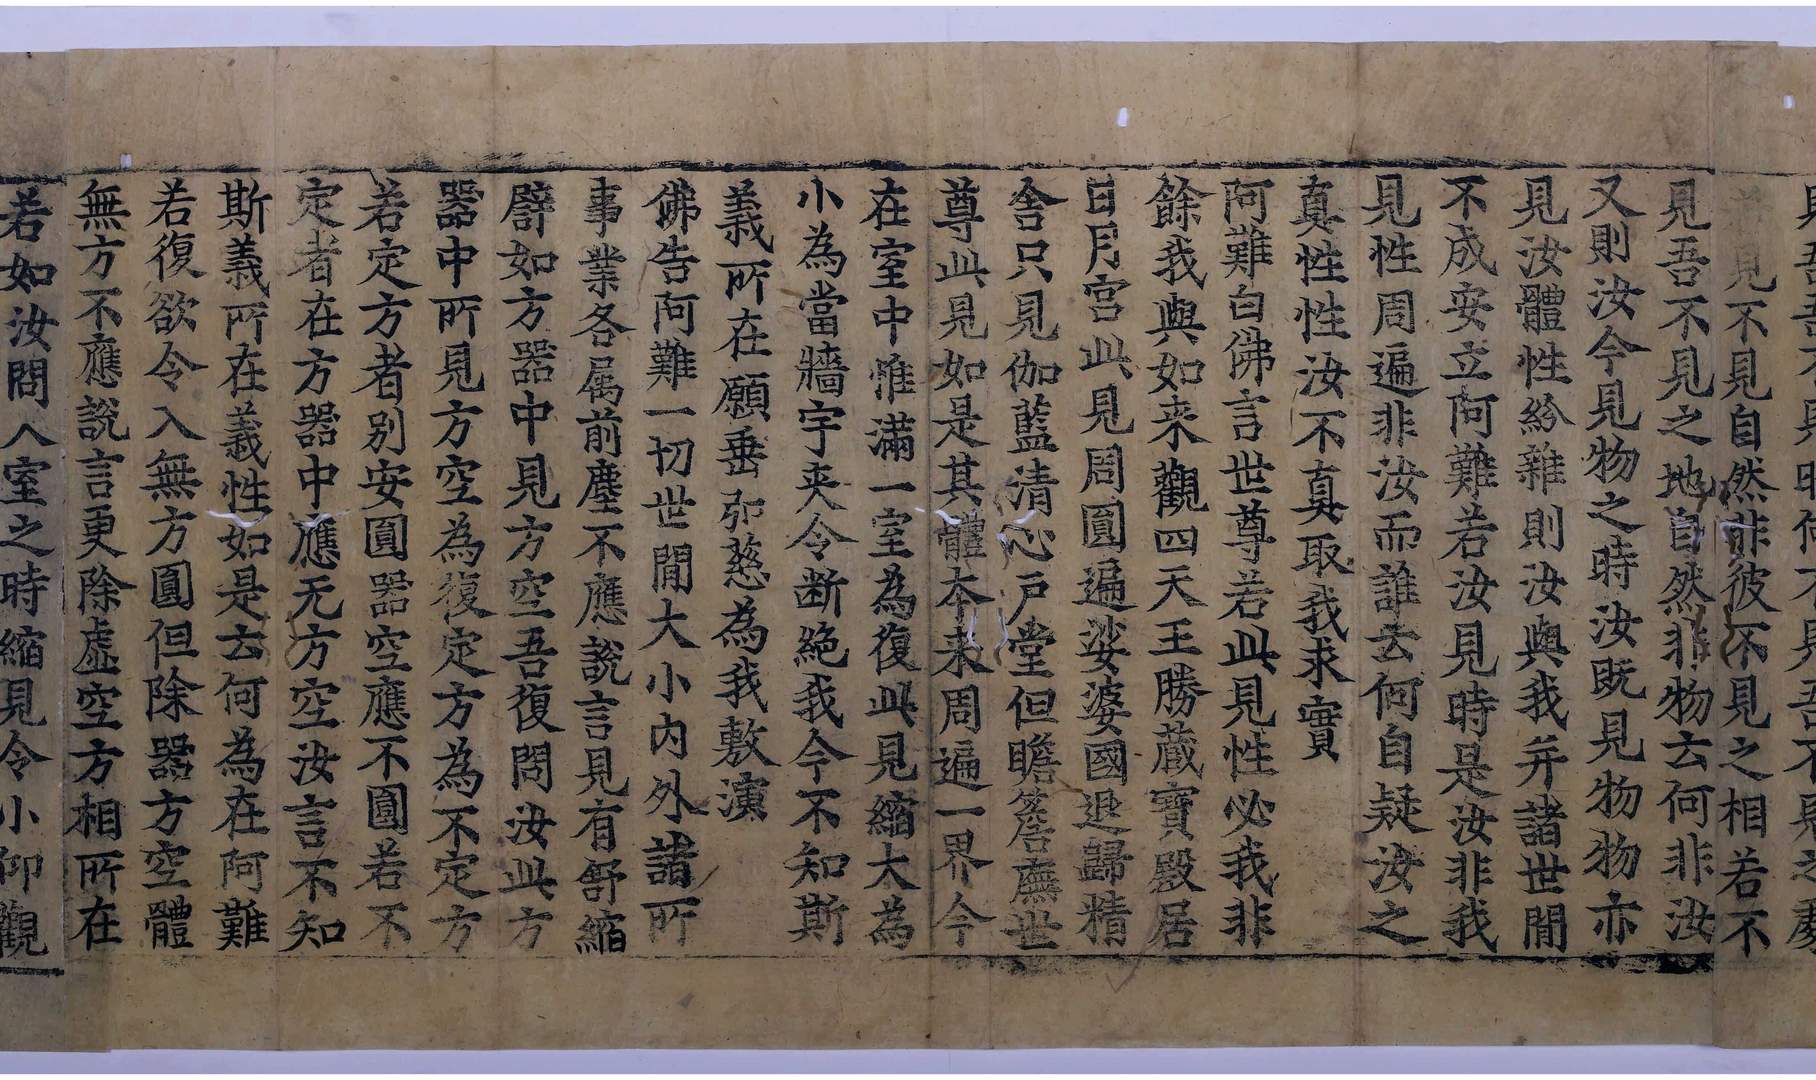 見吾吾不見時何不見吾不見之處
若見不見自然非彼不見之相若不
見吾不見之地自然非物云何非汝
又則汝今見物之時汝既見物物亦
見汝體性紛雜則汝與我并諸世間
不成安立阿難若汝見時是汝非我
見性周遍非汝而誰云何自疑汝之
真性性汝不真取我求實
阿難白佛言世尊若此見性必我非
餘我與如来觀四天王勝藏寶殿居
日月宮此見周圓遍娑婆國退歸精
舍只見伽藍清心戶堂但瞻簷廡世
尊此見如是其體本来周遍一界今
在室中惟滿一室為復此見縮大為
小為當牆宇夾令断絕我今不知斯
義所在願垂弘慈為我敷演
佛告阿難一切世間大小內外諸所
事業各属前塵不應說言見有舒縮
譬如方器中見方空吾復問汝此方
器中所見方空為復定方為不定方
若定方者別安圓器空應不圓若不
定者在方器中應无方空汝言不知
斯義所在義性如是云何為在阿難
若復欲令入無方圓但除器方空體
無方不應說言更除虛空方相所在
若如汝問入室之時縮見令小仰觀